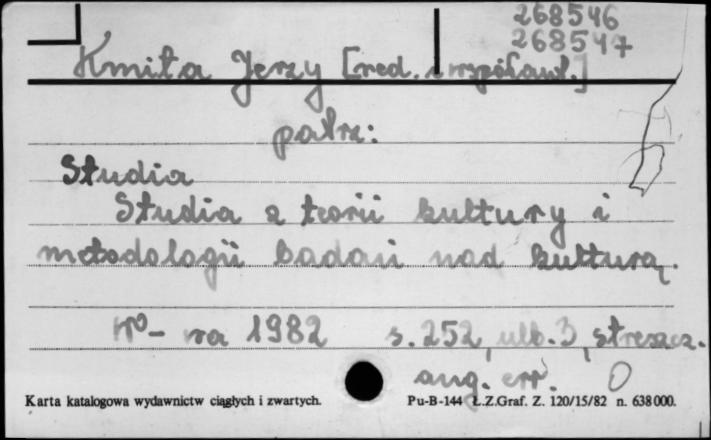 268546
268547
Kmita Jerzy [red. i współaut.]
patrz:
Studia
Studia z teorii kultury i
metodologii badań nad kulturą.
W⁰-wa 1982 s. 252, ulb. 3, streszcz.
ang. err. O
Karta katalogowa wydawnictw ciągłych i zwartych. Pu-B-144 Ł.Z.Graf. Z. 120/15/82 n. 638000.